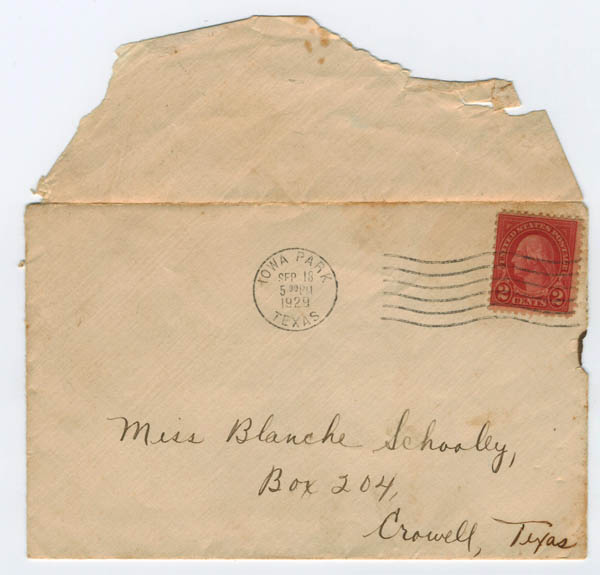 IOWA PARK
SEP 18
1929
TEXAS
UNITED STATES POSTAGE
2 CENTS 2
Miss Blanche Schooley,
Box 204,
Crowell, Texas